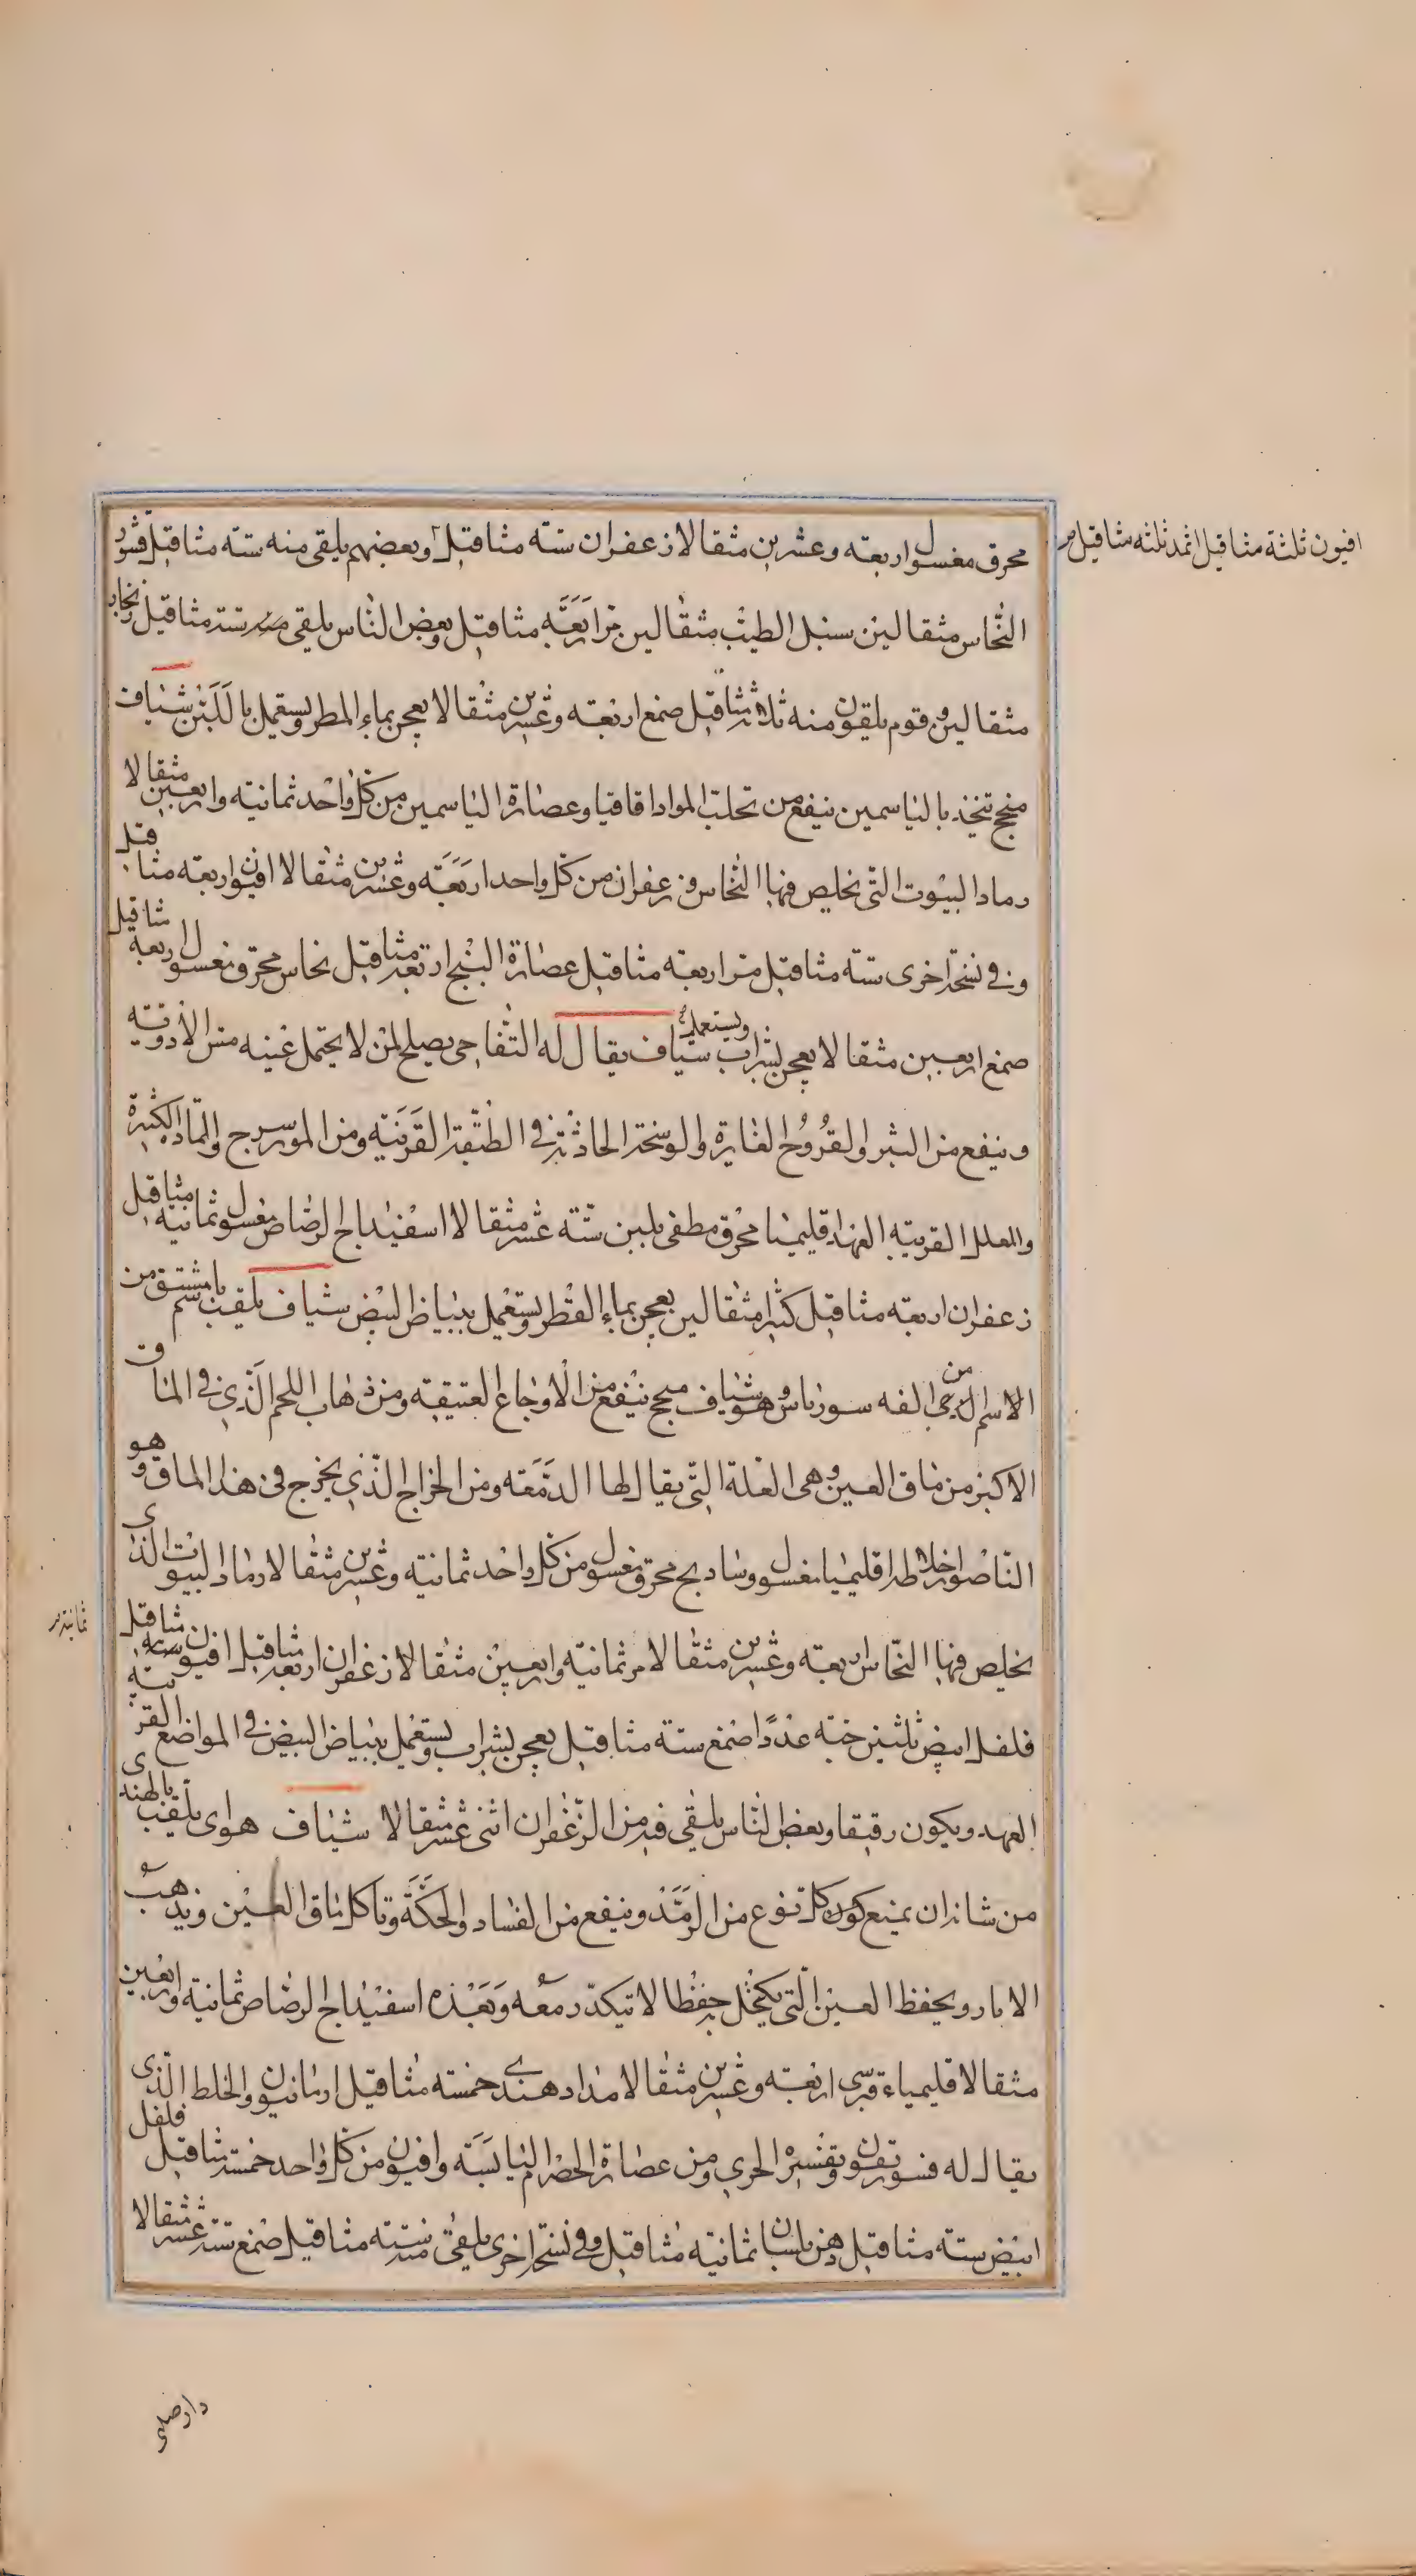 محرق مغسول اربعة وعشرين مثقالا زعفران ستة مثاقيل وبعضهم يلقى منه ستة مثاقيل قشور
افيون ثلثة مثاقيل اثمد ثلثه مثاقيل مر
النحاس مثقالين سنبل الطيب مثقالين مر اربعة مثاقيل وبعض الناس يلقى منه ستة مثاقيل زنجار
مثقالين وقوم يلقون منه ثلاثة مثاقيل صمغ اربعة وعشرين مثقالا يعجن بماء المطر ويستعمل باللبن شياف
منجح تتخذ بالياسمين ينفع من تحلب المواد اقاقيا وعصارة الياسمين من كل واحد ثمانية واربعين مثقالا
رماد البيوت التى يخلص فيها النحاس وزعفران من كل واحد اربعة وعشرين مثقالا افيون اربعة مثاقيل
وفى نسخة اخرى ستة مثاقيل مر اربعة مثاقيل عصارة البنج اربعة مثاقيل نحاس محرق مغسول اربعة مثاقيل
صمغ اربعين مثقالا يعجن بشراب ويستعمل شياف يقال له التفاحى يصلح لمن لا يحتمل عينه مس الأدوية
وينفع من البثر والقروح الغايرة والوسخة الحادثة فى الطبقة القرنية ومن الموسرج والمادة الكثيرة
والعلل القريبة العهد اقليميا محرق مطفى بلبن ستة عشر مثقالا اسفيداج الرصاص مغسول ثمانية مثاقيل
زعفران اربعة مثاقيل كثيرا مثقالين يعجن بماء القطر ويستعمل ببياض البيض شياف يلقب باسم مشتق من
الاسم الدى من الفه سوزناس وهو شياف منجح ينفع من الأوجاع العتيقة ومن ذهاب اللحم الذى فى الماق
الاكبر من ماق العين وهى العلة التى يقال لها الدمعة ومن الخراج الذى يخرج فى هذا الماق وهو
الناصور اخلاطه اقليميا مغسول وسادنج محرق مغسول من كل واحد ثمانية وعشرين مثقالا رماد البيوت الذى
يخلص فيها النحاس اربعة وعشرين مثقالا مر ثمانية واربعين مثقالا زعفران اربعة مثاقيل افيون ستة مثاقيل
فلفل ابيض ثلثين حبة عددا صمغ ستة مثاقيل يعجن بشراب ويستعمل ببياض البيض فى المواضع القريبة
العهد ويكون رقيقا وبعض الناس يلقى فيه من الزعفران اثنى عشر مثقالا شياف هواى يلقب بالهندى
من شانه ان يمنع كون كل نوع من الرمد وينفع من الفساد والحكة وتاكل ماق العين ويذهب
الاثار ويحفظ العين التى يكتحل به حفظا لا تبكد معه وبعده اسفيداج الرصاص ثمانية واربعين
مثقالا قليمياء قبرسى اربعة وعشرين مثقالا مداد هندى خمسة مثاقيل ارمانيون والخلط الذى
يقال له فسوريقون وتفسيره الحرى ومن عصارة الحضرم اليابسة وافيون من كل واحد خمسة مثاقيل فلفل
ابيض ستة مثاقيل دهن بلسان ثمانية مثاقيل وفى نسخة اخرى يلقى منه ستة مثاقيل صمغ ستة عشر مثقالا